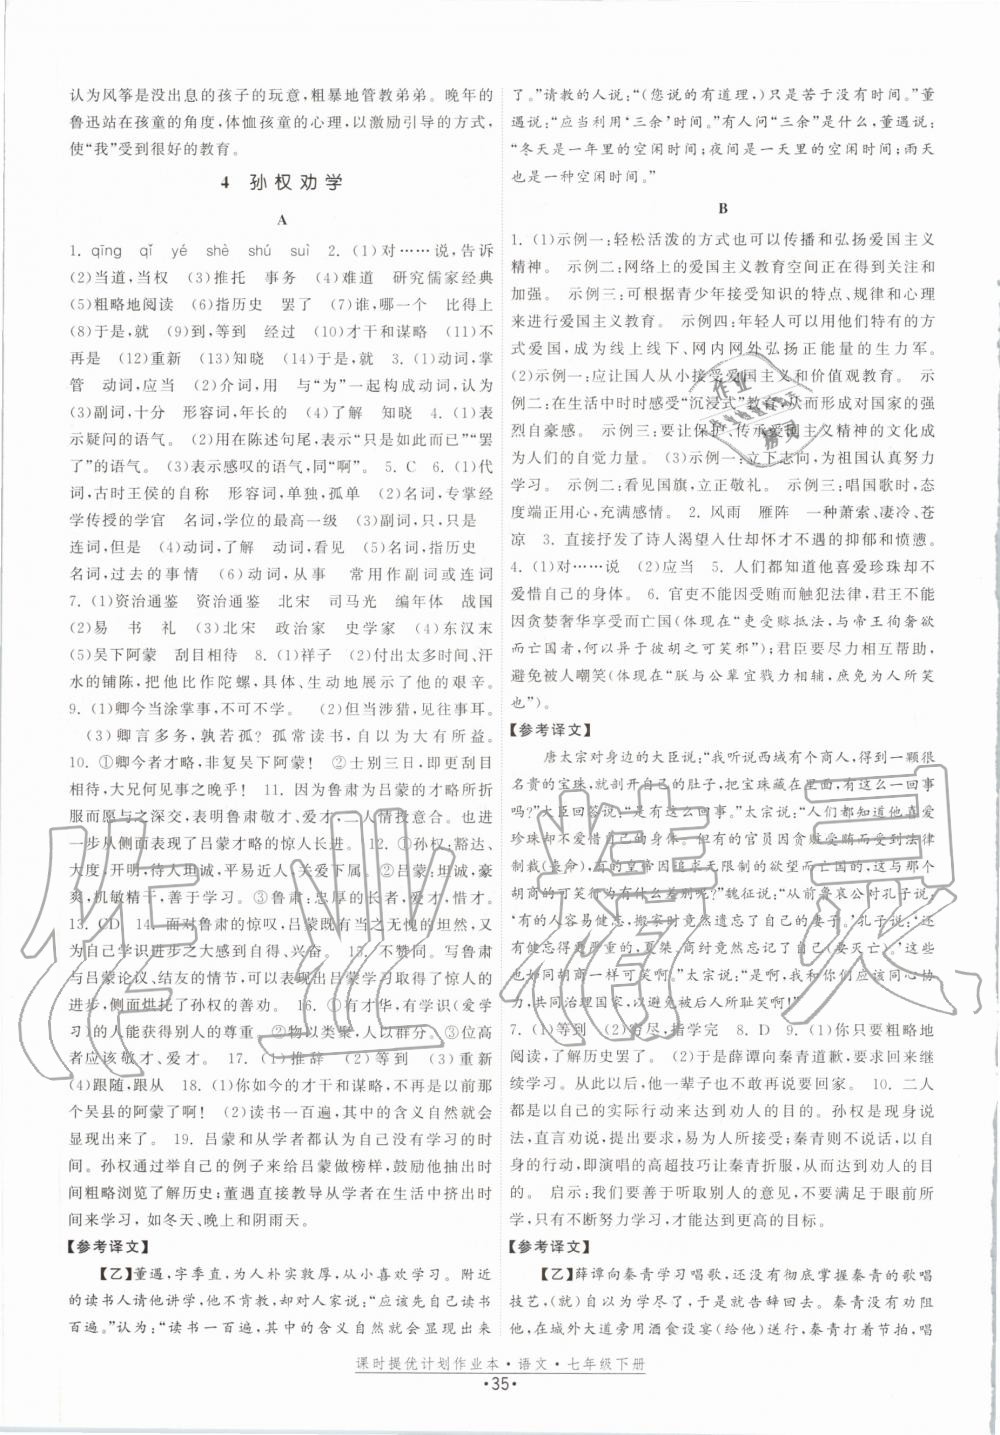 认为风筝是没出息的孩子的玩意，粗暴地管教弟弟。晚年的
鲁迅站在孩童的角度，体恤孩童的心理，以激励引导的方式，
使“我”受到很好的教育。
4 孙权劝学
A
1. qīng qǐ yé shè shú suì 2. (1)对……说，告诉
(2)当道，当权 (3)推托 事务 (4)难道 研究儒家经典
(5)粗略地阅读 (6)指历史 罢了 (7)谁，哪一个 比得上
(8)于是，就 (9)到，等到 经过 (10)才干和谋略 (11)不
再是 (12)重新 (13)知晓 (14)于是，就 3. (1)动词，掌
管 动词，应当 (2)介词，用 与“为”一起构成动词，认为
(3)副词，十分 形容词，年长的 (4)了解 知晓 4. (1)表
示疑问的语气。 (2)用在陈述句尾，表示“只是如此而已”“罢
了”的语气。 (3)表示感叹的语气，同“啊”。 5. C 6. (1)代
词，古时王侯的自称 形容词，单独，孤单 (2)名词，专掌经
学传授的学官 名词，学位的最高一级 (3)副词，只，只是
连词，但是 (4)动词，了解 动词，看见 (5)名词，指历史
名词，过去的事情 (6)动词，从事 常用作副词或连词
7. (1)资治通鉴 资治通鉴 北宋 司马光 编年体 战国
(2)易 书 礼 (3)北宋 政治家 史学家 (4)东汉末
(5)吴下阿蒙 刮目相待 8. (1)祥子 (2)付出太多时间、汗
水的铺陈，把他比作陀螺，具体、生动地展示了他的艰辛。
9. (1)卿今当涂掌事，不可不学。 (2)但当涉猎，见往事耳。
(3)卿言多务，孰若孤？孤常读书，自以为大有所益。
10. ①卿今者才略，非复吴下阿蒙！ ②士别三日，即更刮目
相待，大兄何见事之晚乎！ 11. 因为鲁肃为吕蒙的才略所折
服而愿与之深交，表明鲁肃敬才、爱才，二人情投意合。也进
一步从侧面表现了吕蒙才略的惊人长进。 12. ①孙权：豁达、
大度，开明，待人坦诚，平易近人，关爱下属。 ②吕蒙：坦诚，豪
爽，机敏精干，善于学习。 ③鲁肃：忠厚的长者，敬才，惜才。
13. CD 14. 面对鲁肃的惊叹，吕蒙既有当之无愧的坦然，又
有为自己学识进步之大感到的自得、兴奋。 15. 不赞同。写鲁肃
与吕蒙论议、结友的情节，可以表现出吕蒙取得了惊人的
进步，侧面烘托了孙权的善劝。 16. ①有才华，有学识(爱学
习)的人能获得别人的尊重 ②物以类聚，人以群分 ③位高
者应该敬才、爱才。 17. (1)推辞 (2)等到 (3)重新
(4)跟随，跟从 18. (1)你如今的才干和谋略，不再是以前那
个吴县的阿蒙了啊！ (2)读书一百遍，其中的含义自然就会
显现出来了。 19. 吕蒙和从学者都认为自己没有学习的时
间。孙权通过举自己的例子来给吕蒙做榜样，鼓励吕蒙抽时
间粗略浏览了解历史；董遇直接教导从学者在生活中挤出时
间来学习，如冬天、晚上和阴雨天。
【参考译文】
【乙】董遇，字季直，为人朴实敦厚，从小喜欢学习。附近
的读书人请他讲学，他不肯教，却对人家说：“应该先自己读书
百遍。”认为：“读书一百遍，其中的含义自然就会显现出来
了。”请教的人说：“(您说的有道理，)只是苦于没有时间。”董
遇说：“应当利用‘三余’时间。”有人问“三余”是什么，董遇说：
“冬天是一年里的空闲时间；夜间是一天里的空闲时间；雨天
也是一种空闲时间。”
B
1. (1)示例一：轻松活泼的方式也可以传播和弘扬爱国主义
精神。 示例二：网络上的爱国主义教育空间正在得到关注和
开发。 示例三：可根据青少年接受知识的特点、规律和心理
来进行爱国主义教育。 示例四：年轻人可以用他们特有的方
式爱国，成为线上线下、网内网外弘扬正能量的生力军。
(2)示例一：应让国人从小接受爱国主义和价值观教育。 示
例二：在生活中时时感受“沉浸式”教育，从而形成对国家的强
烈自豪感。 示例三：要让保护、传承爱国主义精神的文化成
为人们的自觉力量。 (3)示例一：立下志向，为祖国认真努力
学习。 示例二：看见国旗，立正敬礼。 示例三：唱国歌时，态
度端正用心，充满感情。 2. 风雨 雁阵 一种萧索、凄冷、苍
凉 3. 直接抒发了诗人渴望入仕却怀才不遇的抑郁和愤懑。
4. (1)对……说 (2)应当 5. 人们都知道他喜爱珍珠却不
爱惜自己的身体。 6. 官吏不能因受贿而触犯法律，君王不能
因贪婪奢华享受而亡国(体现在“吏受赇抵法，与帝王徇奢欲
而亡国者，何以异于彼胡之可笑邪”)；君臣要互相帮助，
避免被人嘲笑(体现在“朕与公辈宜戮力相辅，庶免为人所笑
也”)。
【参考译文】
唐太宗对身边的大臣说：“我听说西域有个商人，得到一颗很
名贵的宝珠，就剖开自己的肚子，把宝珠藏在里面，有这么一回事
吗？”大臣回答说：“是有这么一回事。”太宗说：“人们都知道他喜爱
珍珠却不爱惜自己的身体。但有的官员因贪赃受贿而受到法律
制裁(丧命)，有的皇帝因追求无限制的欲望而亡国的，这些与那个
胡商的可笑行为有什么差别呢？”魏征说：“从前鲁哀公对孔子说：
‘有的人容易健忘，搬家时竟然遗忘了自己的妻子。’孔子说：‘还
有健忘得更厉害的，夏桀、商纣竟然忘记了自己(要灭亡)。’这些
也同样可笑啊。”太宗说：“我和你们应该同心协
力，共同治理国家，以避免被后人所耻笑啊！”
7. (1)等到 (2)穷尽，指学完 8. D 9. (1)你只要粗略地
阅读，了解历史罢了。 (2)于是薛谭向秦青道歉，要求回来继
续学习。从此他一辈子也不敢再说要回家。 10. 二人
都是以自己的实际行动来达到劝人的目的。孙权是现身说
法，直言劝说，提出要求，易为人接受；秦青则不用言语规劝，
而是用行动，即演唱的高超技巧让秦青折服，从而达到劝人的目
的。 启示：我们要善于听取别人的意见，不要满足于眼前所
学，只有不断努力学习，才能达到更高的目标。
【参考译文】
【乙】薛谭向秦青学习唱歌，还没有彻底掌握秦青的歌唱
技艺，(就)自以为学尽了，于是就告辞回去。秦青没有劝阻
他，在城外大道旁用酒食设宴(给他)送行，秦青打着节拍，唱
课时提优计划作业本·语文·七年级下册
·35·
作业精灵